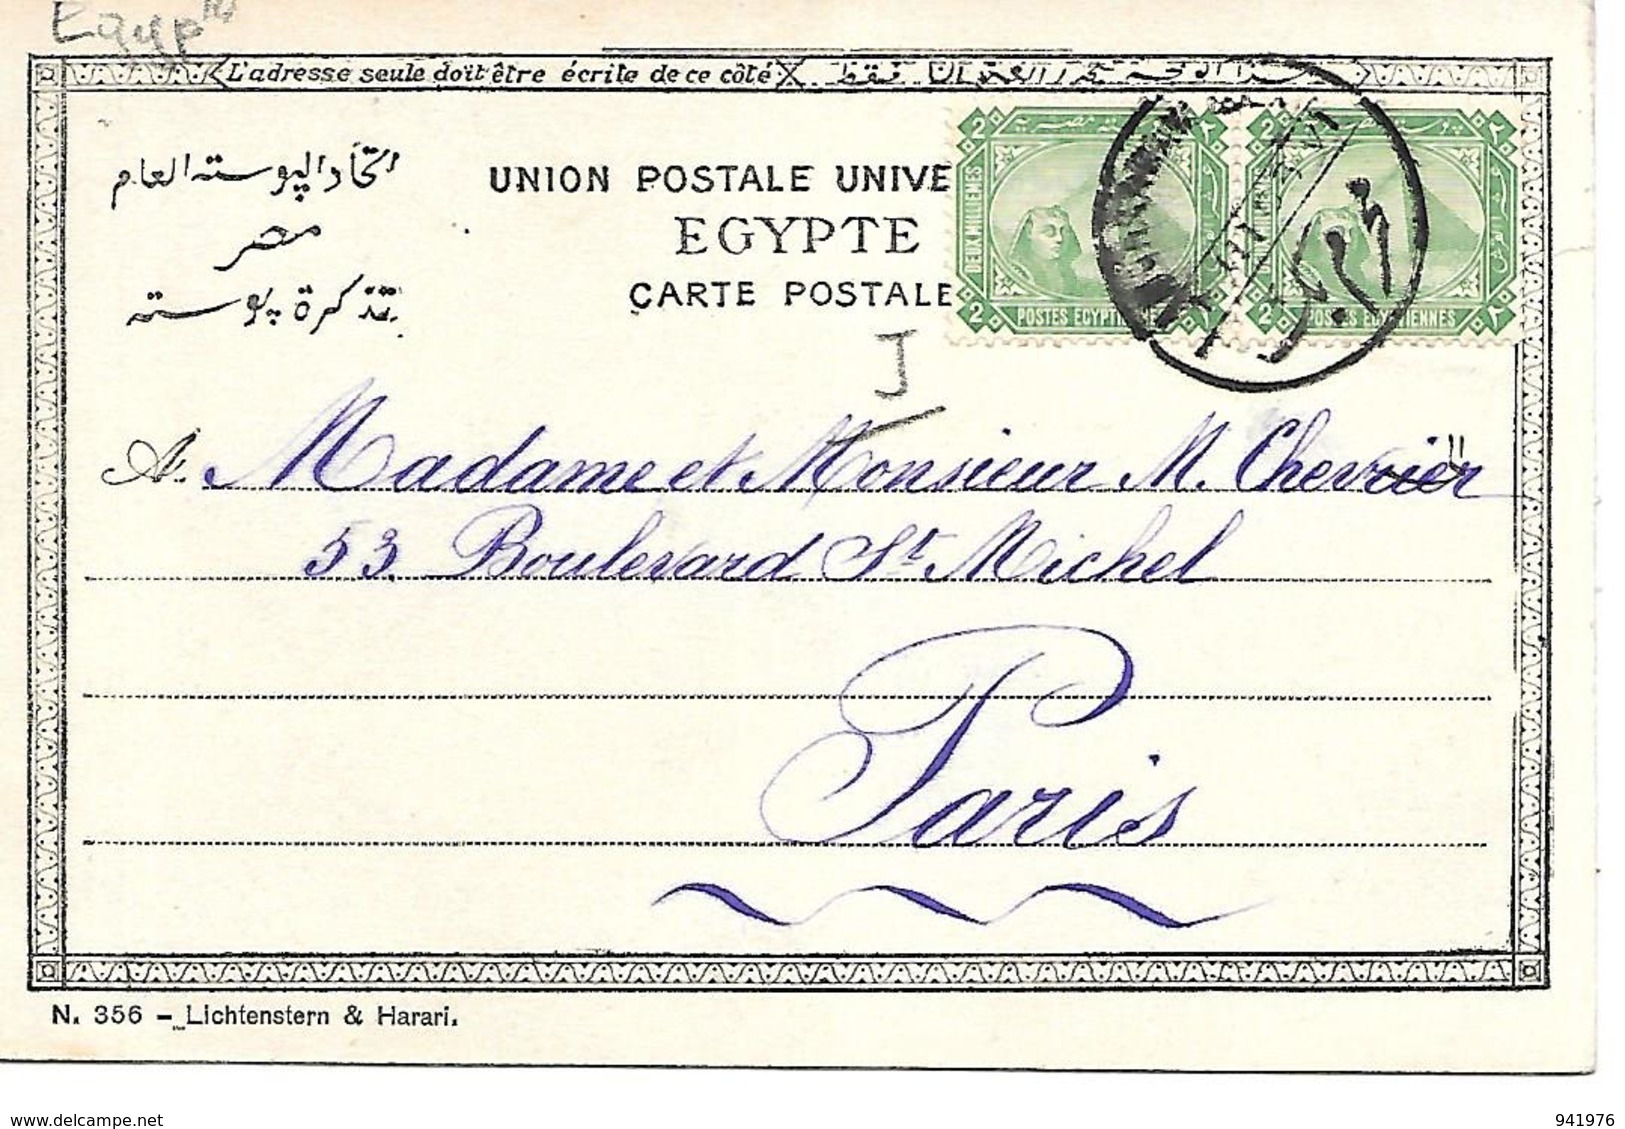 Egypte
L'adresse seule doit être écrite de ce côté
اتحاد البوسته العام
مصر
تذكرة بوسته
UNION POSTALE UNIVE
EGYPTE
CARTE POSTALE
2 2
DEUX MILLIEMES
POSTES EGYPTIENNES
J
A. Madame et Monsieur M. Chevrier
53 Boulevard St Michel
Paris
N. 356 – Lichtenstern & Harari.
www.delcampe.net 941976